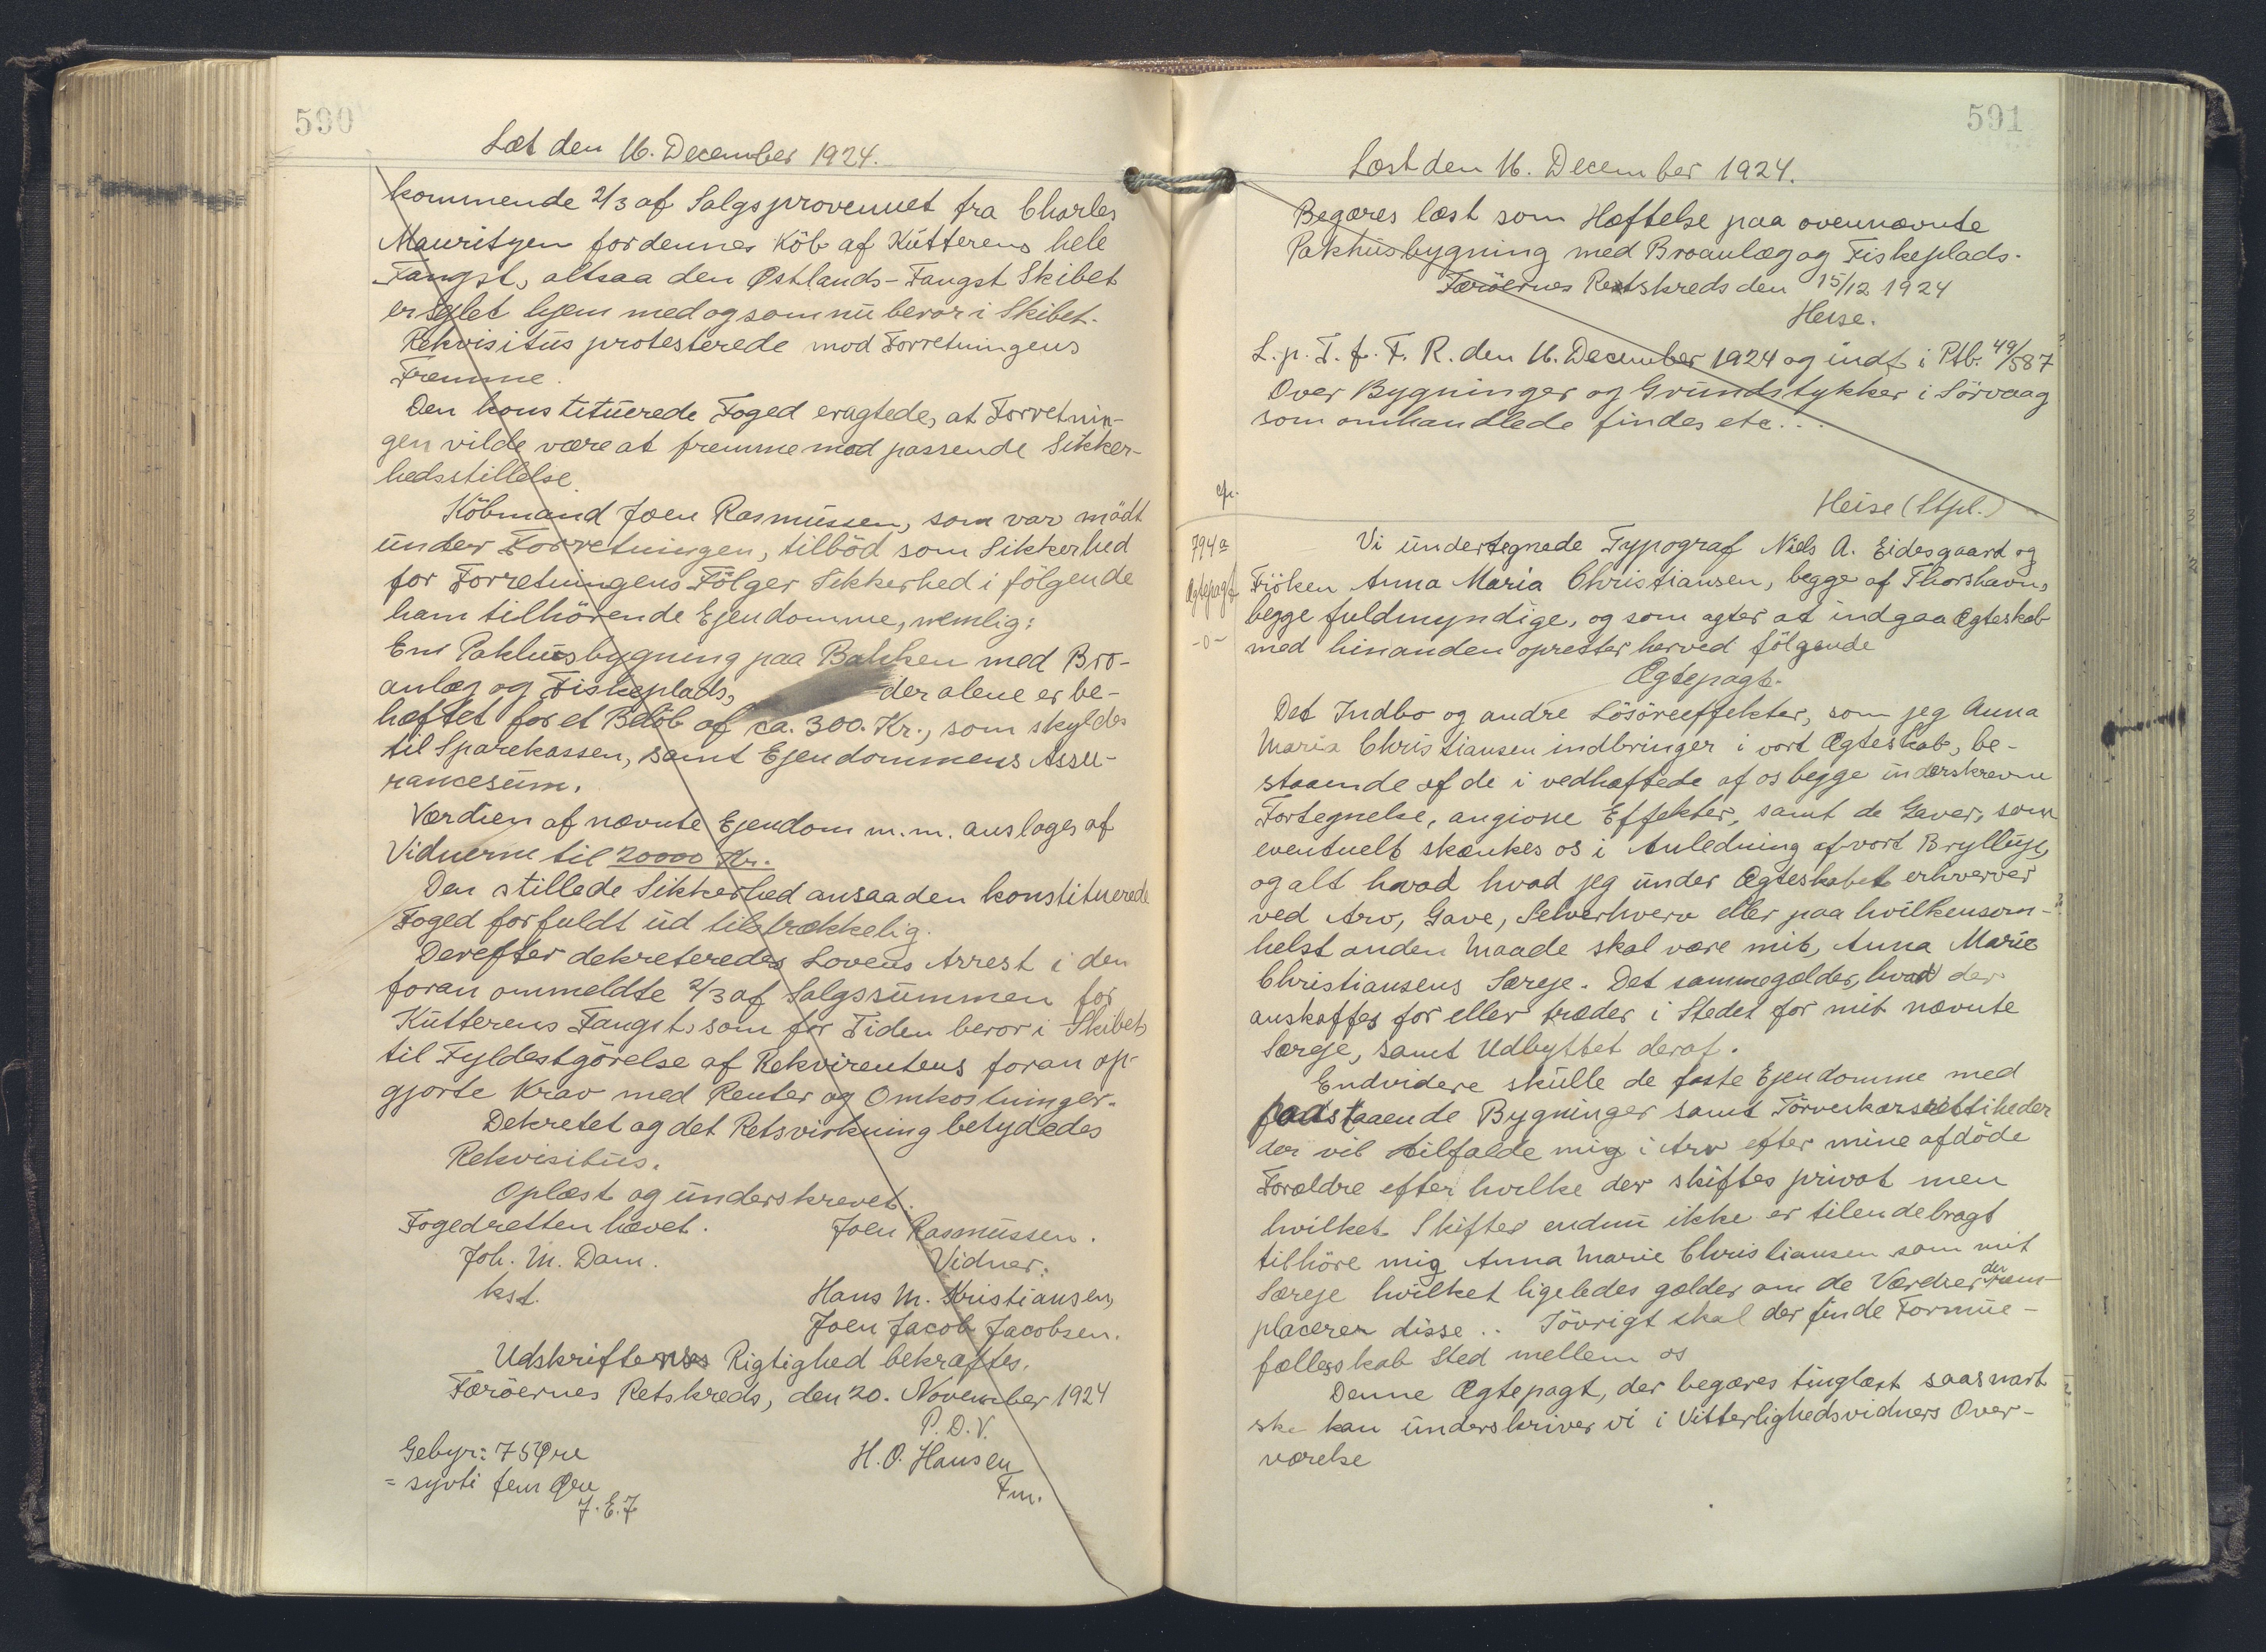 590
Læst den 16. December 1924.
kommende 2/3 af Salgsprovenuet fra Charles
Mauritzen for dennes Köb af Kutterens hele
Fangst, altsaa den Østlands-Fangst Skibet
er sejlet hjem med og som nu beror i Skibet.
Rekvisitus protesterede mod Forretningens
Fremme.
Den konstituerede Foged eragtede, at Forretnin-
gen vilde være at fremme mod passende Sikker-
hedsstillelse.
Köbmand Joen Rasmussen, som var mödt
under Forretningen, tilböd som Sikkerhed
for Forretningens Fölger Sikkerhed i fölgende
ham tilhörende Ejendomme, nemlig:
Em Pakhusbygning paa Bakken med Bro-
anlæg og Fiskeplads, der alene er be-
hæftet for et Belöb af ca. 300. Kr., som skyldes
til Sparekassen, samt Ejendommens Assu-
rancesum.
Værdien af nævnte Ejendom m.m. anslages af
Vidnerne til 20000 Kr.
Den stillede Sikkerhed ansaa den konstituerede
Foged for fuldt ud tilstrækkelig.
Derefter dekreteredes Lovens Arrest i den
foran ommeldte 2/3 af Salgssummen for
Kutterens Fangst, som for Tiden beror i Skibet,
til Fyldestgörelse af Rekvirentens foran op-
gjorte Krav med Renter og Omkostninger.
Dekretet og det Retsvirkning betydedes
Rekvisitus.
Oplæst og underskrevet.
Fogedretten hævet. Joen Rasmussen.
Joh. M. Dam. Vidner:
kst. Hans M. Kristiansen,
Joen Jacob Jacobsen.
Udskriftens Rigtighed bekræftes.
Færöernes Retskreds, den 20. November 1924
P. D. V.
Gebyr: 75 Øre H. O. Hansen
= syvti fem Øre Fm.
J. E. J
591
Læst den 16. December 1924.
Begæres læst som Hæftelse paa ovennævnte
Pakhusbygning med Broanlæg og Fiskeplads.
Færöernes Retskreds den 15/12 1924
Heise.
L. p. T. f. F. R. den 16. December 1924 og indf. i Ptb. 49/587
Over Bygninger og Grundstykker i Sörvaag
som omhandlede findes etc...
Heise (Stpl.)
794a
Ægtepagt
-0-
Vi undertegnede Typograf Niels A. Eidesgaard og
Fröken Anna Maria Christiansen, begge af Thorshavn,
begge fuldmyndige, og som agter at indgaa Ægteskab
med hinanden opretter herved fölgende
Ægtepagt.
Det Indbo og andre Lösöreeffekter, som jeg Anna
Maria Christiansen indbringer i vort Ægteskab, be-
staaende af de i vedhæftede af os begge underskrevne
Fortegnelse, angivne Effekter, samt de Gaver, som
eventuelt skænkes os i Anledning af vort Bryllup,
og alt hvad hvad jeg under Ægteskabet erhverver
ved Arv, Gave, Selverhverv eller paa hvilkensom-
helst anden Maade skal være mit, Anna Marie
Christiansens Særeje. Det samme gælder, hvad der
anskaffes for eller træder i Stedet for mit nævnte
Særeje, samt Udbyttet deraf.
Endvidere skulle de faste Ejendomme med
paastaaende Bygninger samt Törveskærsrettiheder
der vil tilfalde mig i Arv efter mine afdöde
Forældre efter hvilke der skiftes privat men
hvilket Skifte endnu ikke er tilendebragt
tilhöre mig Anna Marie Christiansen som mit
Særeje hvilket ligeledes gælder om de Værdier der rem-
placerer disse.. Iövrigt skal der finde Formue-
fællesskab Sted mellem os
Denne Ægtepagt, der begæres tinglæst saasnart
ske kan underskriver vi i Vitterlighedsvidners Over-
værelse